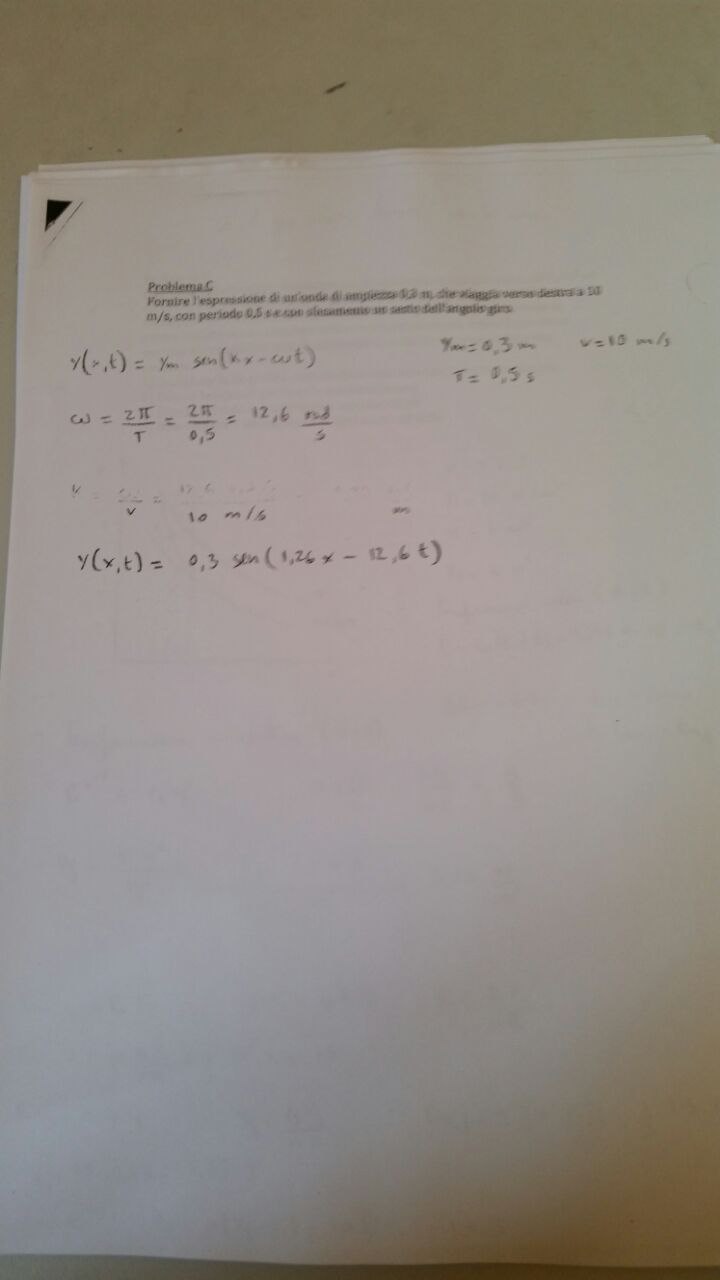 Problema C
Fornire l'espressione di un'onda di ampiezza 0,3 m, che viaggia verso destra a 10
m/s, con periodo 0,5 s e con sfasamento un sesto dell'angolo giro.
y(x,t) = ym sen(kx - ωt)
ym = 0,3 m v = 10 m/s
T = 0,5 s
ω = 2π/T = 2π/0,5 = 12,6 rad/s
k = ω/v = 12,6 / 10 m/s
y(x,t) = 0,3 sen(1,26 x - 12,6 t)